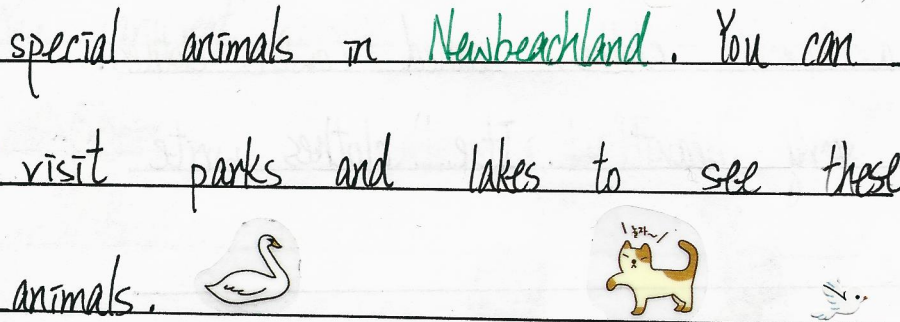 special animals in Newbeachland. You can
visit parks and lakes to see these
놀자~
animals.